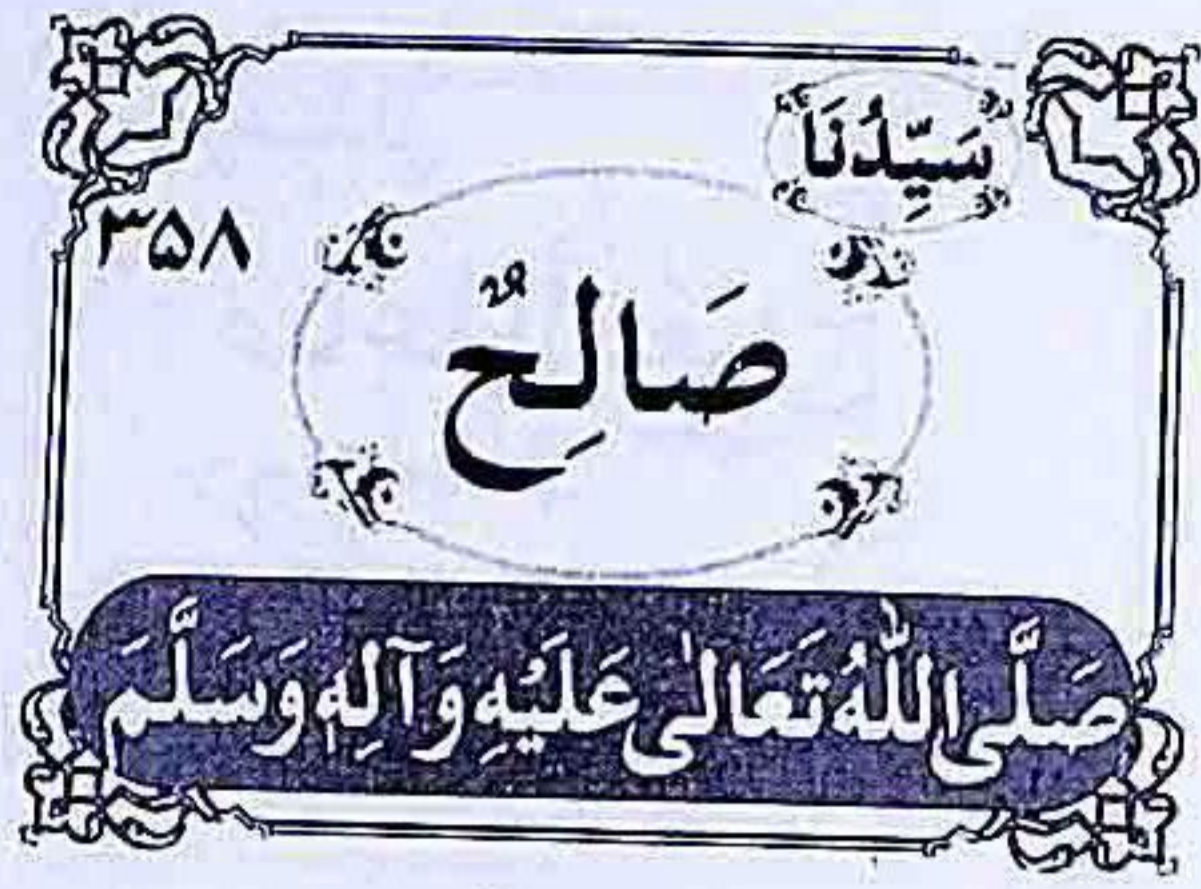 سَيِّدُنَا
۳۵۸
صَالِحٌ
صَلَّى اللّٰهُ تَعَالٰى عَلَيْهِ وَآلِهٖ وَسَلَّمَ